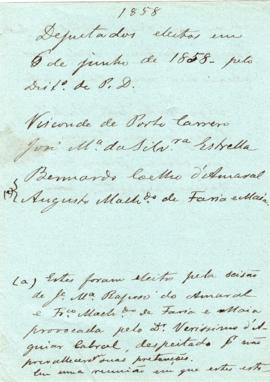 1858
Deputados eleitos em
6 de junho de 1858 - pelo
dist.º de P. D.
Visconde de Porto Carrero
José M.ª da Silv.ra Estrella
Bernardo Coelho d'Amaral
(a) Augusto Mach.do de Faria e Maia
(a) Estes foram eleito pela scisão
de J.e M.ª Raposo do Amaral
e Fr.co Mach.do de Faria e Maia
provocada pelo Dr. Verissimo d'A-
guiar Cabral, despeitado p.r não
suas pretenções.
em uma reunião em que estes est